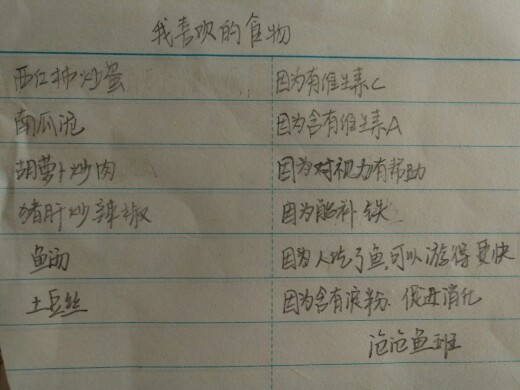 我喜欢的食物
西红柿炒蛋 因为有维生素C
南瓜泡 因为含有维生素A
胡萝卜炒肉 因为对视力有帮助
猪肝炒辣椒 因为能补铁
鱼面 因为人吃了鱼,可以游得更快
土豆丝 因为含有淀粉、促进消化
泡泡鱼班